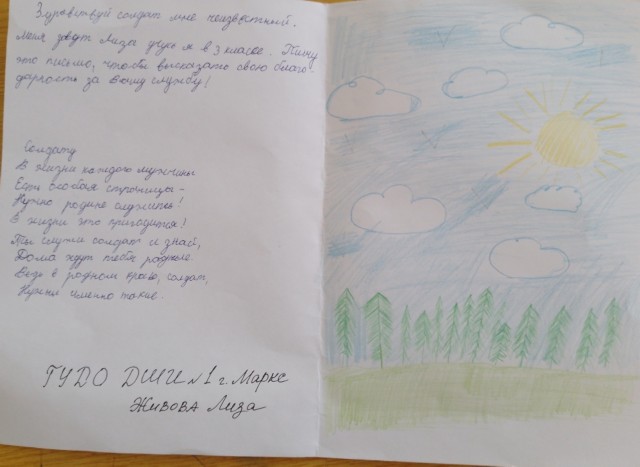 Здравствуй солдат мне неизвестный.
Меня зовут Лиза учусь я в 3 классе. Пишу
это письмо, чтобы высказать свою благо-
дарность за вашу службу!
Солдату
В жизни каждого мужчины
Есть особая страница -
Нужно родине служить!
В жизни это пригодится!
Ты служи солдат и знай,
Дома ждут тебя родные.
Ведь в родном краю, солдат,
Нужны именно такие.
ГУДО ДШИ №1 г. Маркс
Живова Лиза